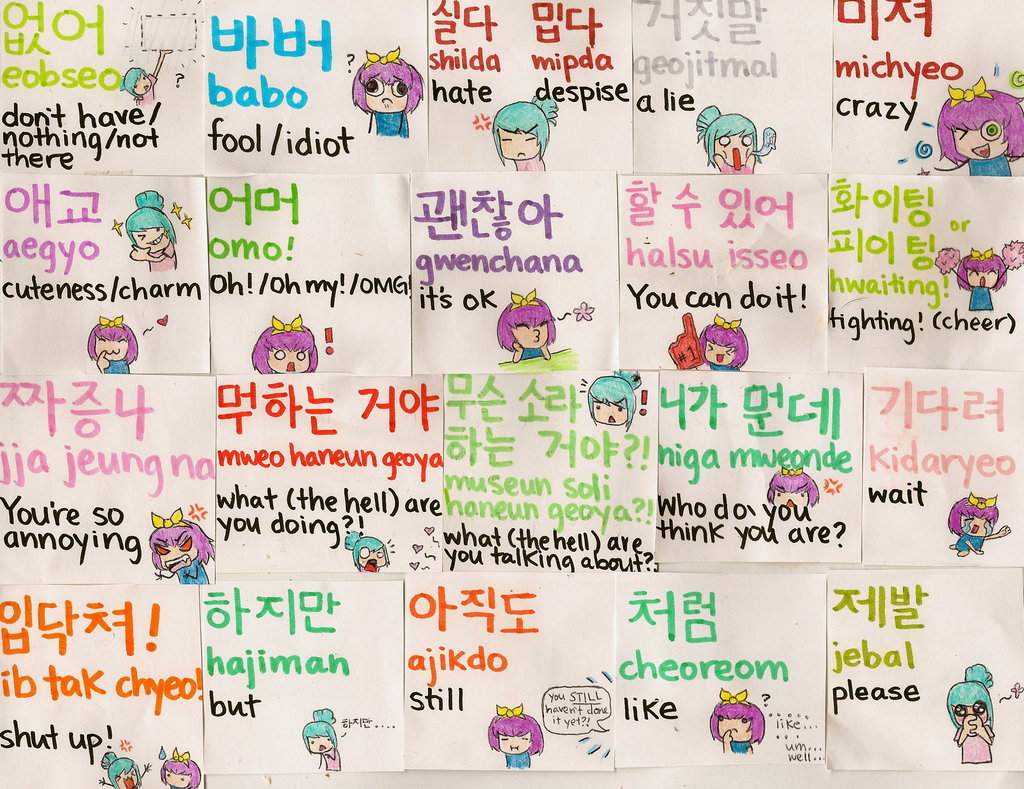 없어
eobseo
?
don't have/
nothing/not
there
바버
babo
?
fool/idiot
싫다 밉다
shilda mipda
hate despise
거짓말
geojitmal
a lie
미쳐
michyeo
crazy
애교
aegyo
cuteness/charm
어머
omo!
Oh!/Oh my!/OMG!
!
괜찮아
gwenchana
it's ok
할 수 있어
halsu isseo
You can do it!
#1
화이팅
or
피이팅
hwaiting!
fighting! (cheer)
짜증나
jja jeung na
You're so
annoying
뭐하는 거야
mweo haneun geoya
what (the hell) are
you doing?!
무슨 소리
하는 거야?!
!
museun soli
haneun geoya?!
what (the hell) are
you talking about?!
니가 뭔데
niga mweonde
Who do you
think you are?
기다려
kidaryeo
wait
입닥쳐!
ib tak chyeo!
shut up!
하지만
hajiman
but
하지만....
아직도
ajikdo
still
you STILL
haven't done
it yet?!
처럼
cheoreom
like
?
like...
um...
well...
제발
jebal
please